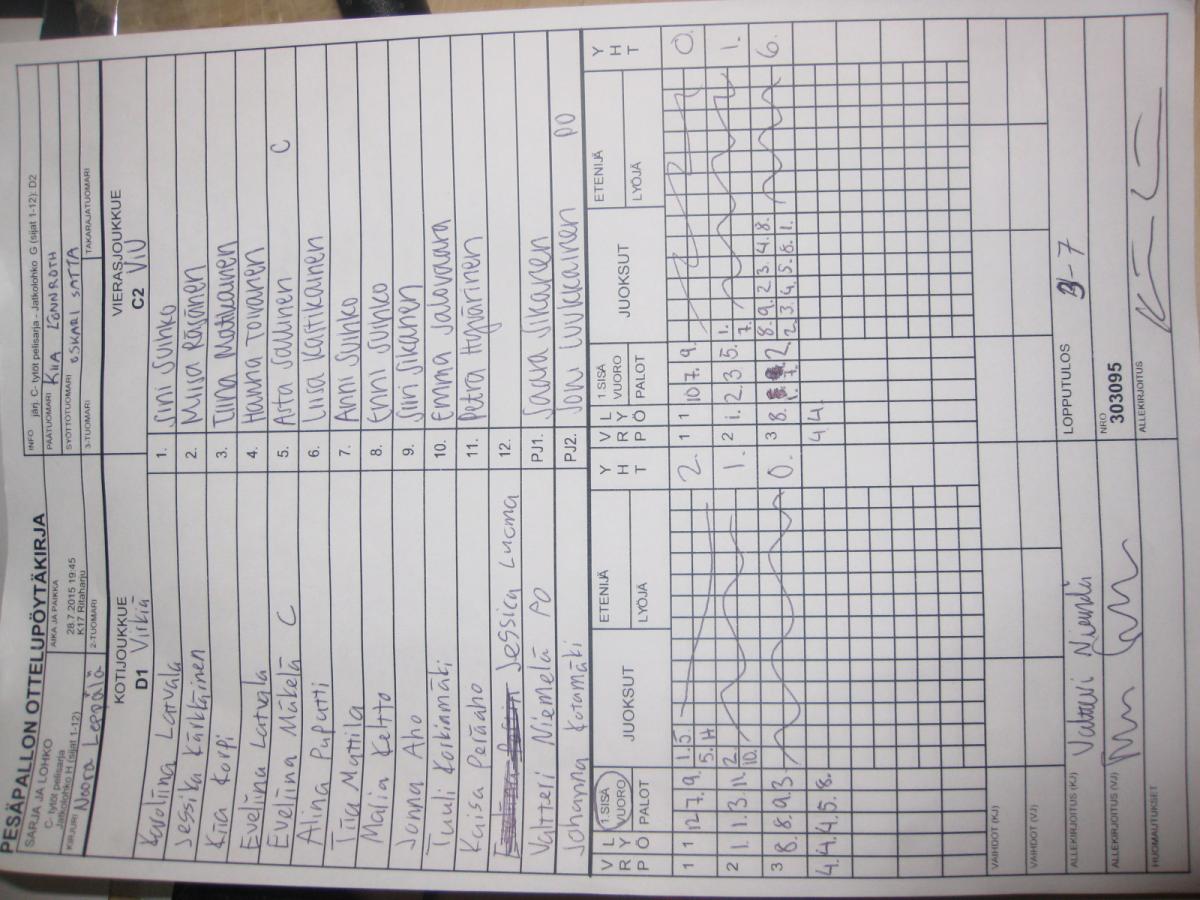 PESÄPALLON OTTELUPÖYTÄKIRJA
SARJA JA LOHKO
C- tytöt pelisarja
Jatkolohko H (sijat 1-12)
AIKA JA PAIKKA
28.7.2015 19:45
K17 Ritaharju
INFO järj. C- tytöt pelisarja - Jatkolohko G (sijat 1-12): D2
PÄÄTUOMARI KIIA LÖNNROTH
SYÖTTÖTUOMARI OSKARI SATTA
KIRJURI Noora Leppälä
2-TUOMARI
3-TUOMARI
TAKARAJATUOMARI
KOTIJOUKKUE
D1 Virkiä
VIERASJOUKKUE
C2 ViU
Karoliina Latvala 1. Sini Suihko
Jessika Kärkkäinen 2. Miisa Räsänen
Kiia Korpi 3. Tiina Matikainen
Evelina Latvala 4. Hanna Toivanen
Eveliina Mäkelä C 5. Asta Saulinen C
Alina Puputti 6. Liisa Kastikainen
Tiia Mattila 7. Anni Suihko
Malia Keltto 8. Enni Suihko
Jonna Aho 9. Siiri Sikanen
Tuuli Korkinmäki 10. Emma Jalavaara
Kaisa Peräaho 11. Petra Hyvärinen
Jessica Luoma 12.
Valtteri Niemelä PO PJ1. Saana Sikanen
Johanna Kotamäki PJ2. Joni Luukkainen PO
V R P L Y Ö 1.SISÄ VUORO PALOT JUOKSUT ETENIJÄ LYÖJÄ Y H T
V R P L Y Ö 1.SISÄ VUORO PALOT JUOKSUT ETENIJÄ LYÖJÄ Y H T
1 1 12 7. 9. 1. 5 2.
5. H
1 1 10 7. 9. 0
2 1. 1. 3. 11. 2. 1.
10.
2 1. 2. 3 5. 1. 1.
7.
3 8. 8. 9. 3. 0.
3 8. 2. 8. 9. 2. 3. 4. 8. 6.
2. 3. 4. 5. 8. 1.
4. 4. 4. 5. 8.
4 4.
VAIHDOT (KJ)
VAIHDOT (VJ)
LOPPUTULOS 3-7
ALLEKIRJOITUS (KJ) Valtteri Niemelä
ALLEKIRJOITUS (VJ)
NRO
303095
ALLEKIRJOITUS
HUOMAUTUKSET